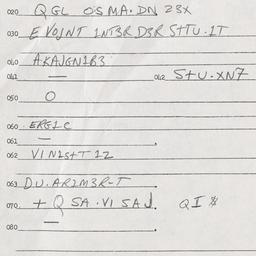 020 QGL OSMA.DN 23X
030 EVOJNT 1NT3R D3R STTU.1T
040 AKAJGN1B3
041 — 042 STU.XN7
050 O
060 ERG1C
061 —
062 VIN1STT 12
063 D.U.AR1M3R-T
070 + Q SA.VI SAJ. QI
080 —